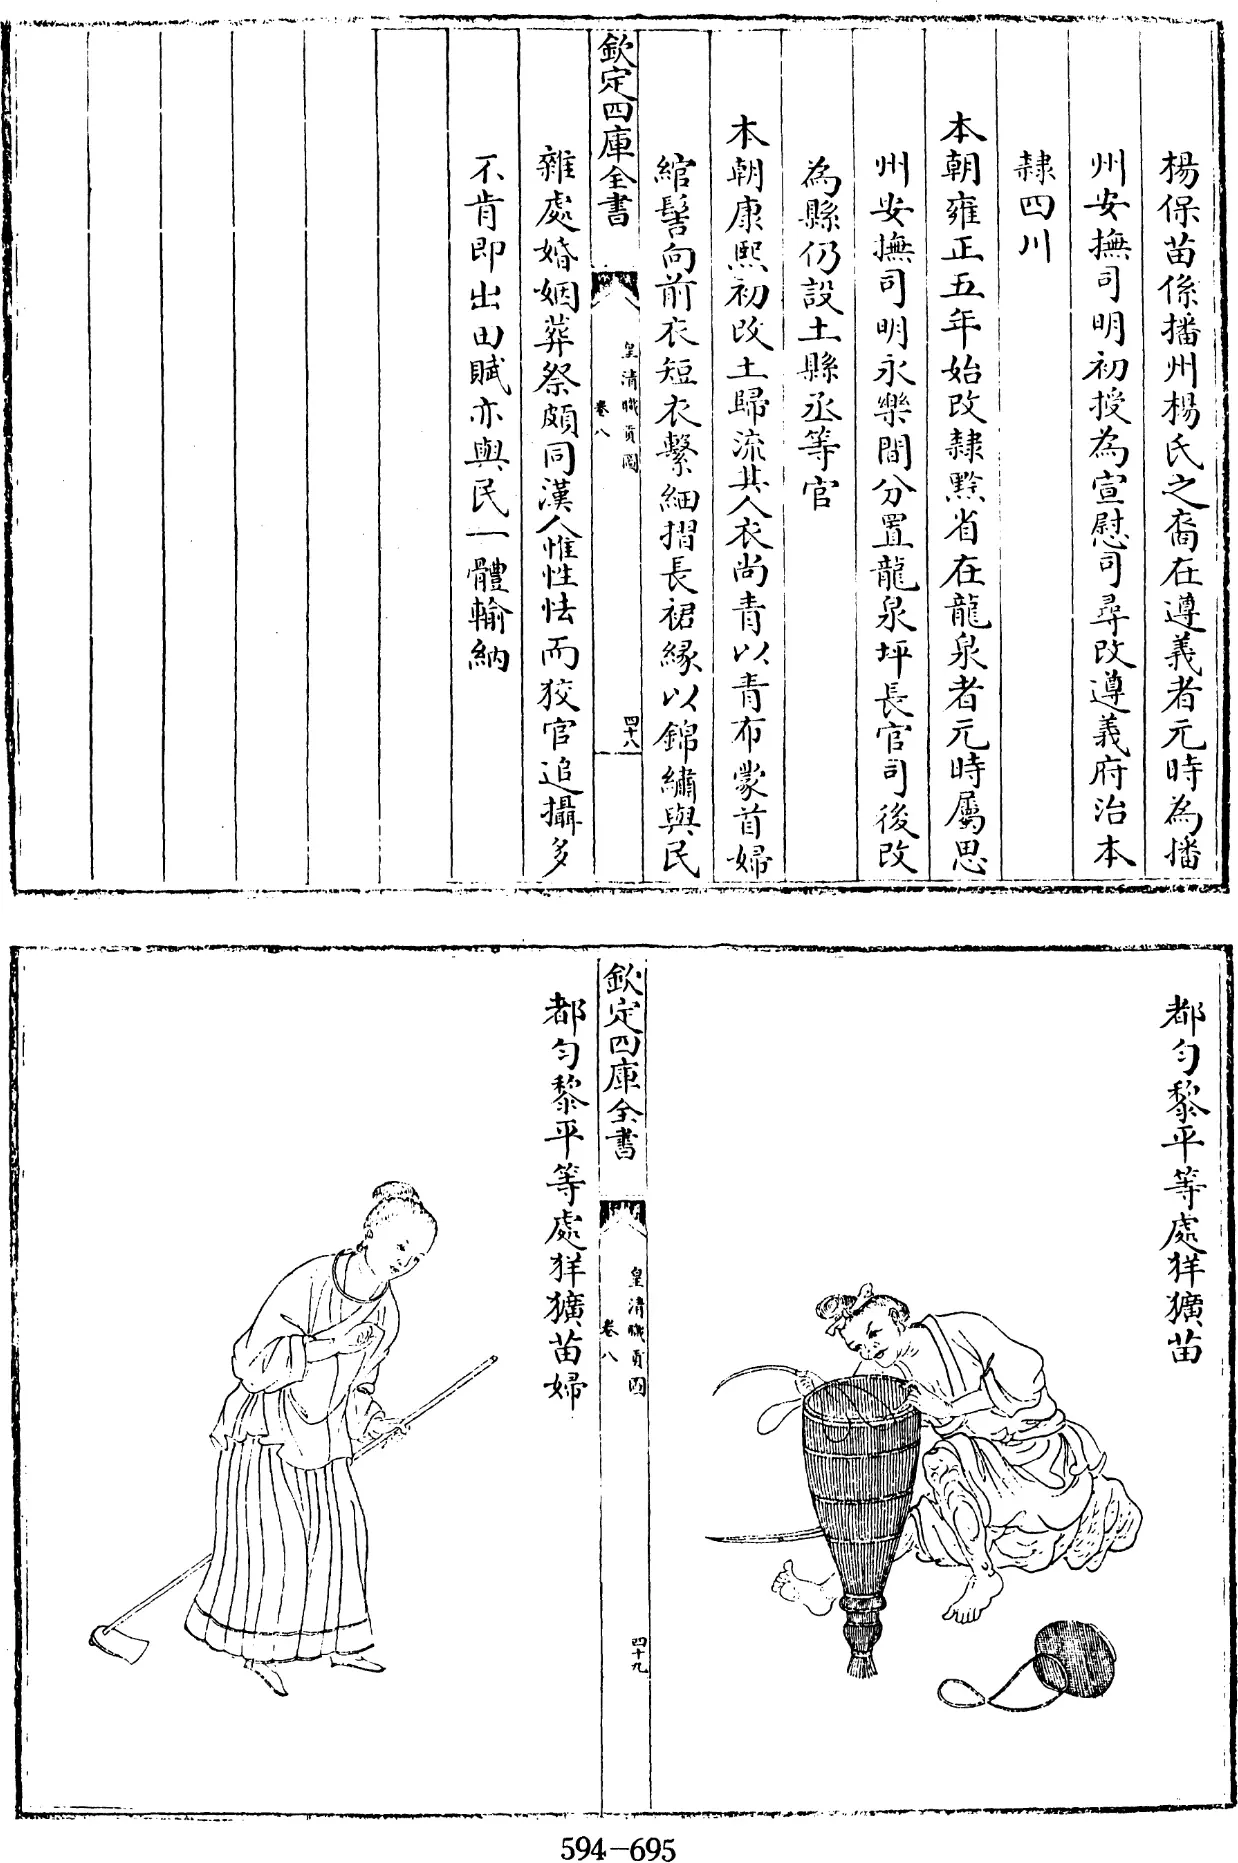 楊保苗係播州楊氏之裔在遵義者元時為播
州安撫司明初授為宣慰司尋改遵義府治本
隸四川
本朝雍正五年始改隸黔省在龍泉者元時屬思
州安撫司明永樂間分置龍泉坪長官司後改
為縣仍設土縣丞等官
本朝康熙初改土歸流其人衣尚青以青布蒙首婦
綰髻向前衣短衣繫細摺長裙緣以錦繡與民
欽定四庫全書
皇清職貢圖
卷八
四十八
雜處婚姻葬祭頗同漢人惟性怯而狡官追攝多
不肯即出田賦亦與民一體輸納
都勻黎平等處狪獚苗
欽定四庫全書
皇清職貢圖
卷八
四十九
都勻黎平等處狪獚苗婦
594-695